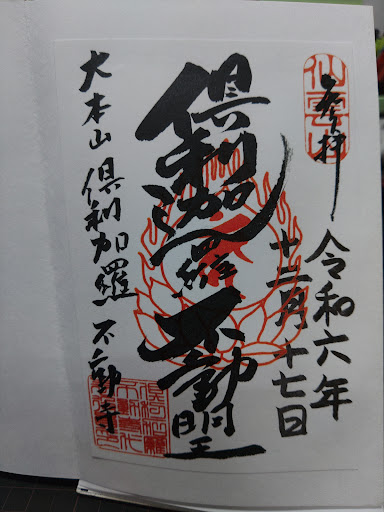 仙雲山
奉拝
令和六年
十二月十七日
倶利迦羅不動明王
大本山倶利加羅不動寺